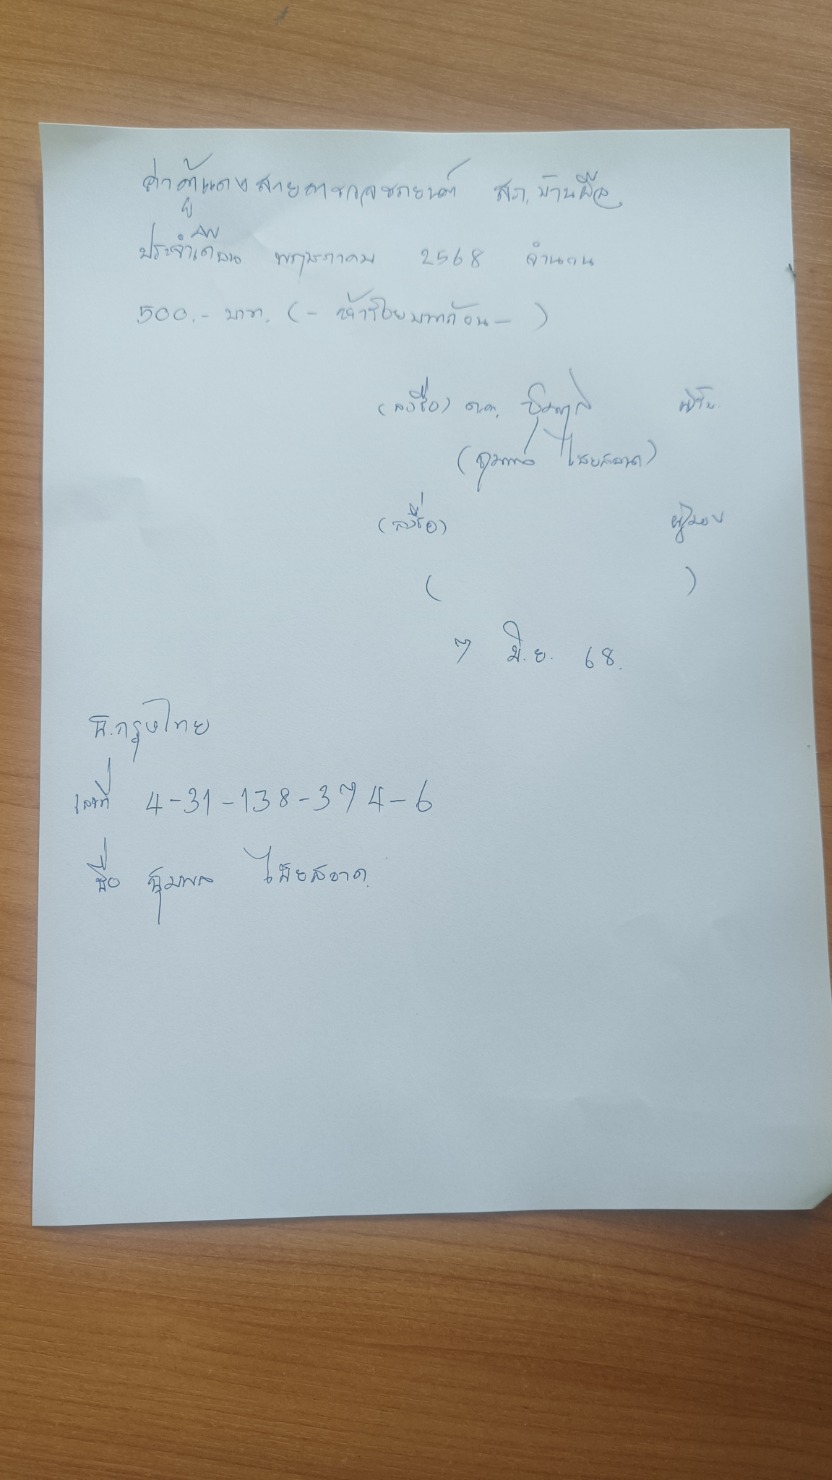 ค่าตู้แดงสายตรวจรถยนต์ สภ.บ้านผือ
ประจำเดือน พฤษภาคม 2568 จำนวน
500.- บาท. (- ห้าร้อยบาทถ้วน - )
(ลงชื่อ) ด.ต. ชุมพล ผู้รับ
(ชุมพล ไชยสอาด)
(ลงชื่อ) ผู้มอบ
( )
7 มิ.ย. 68.
ธ.กรุงไทย
เลขที่ 4-31-138-374-6
ชื่อ ชุมพล ไชยสอาด.